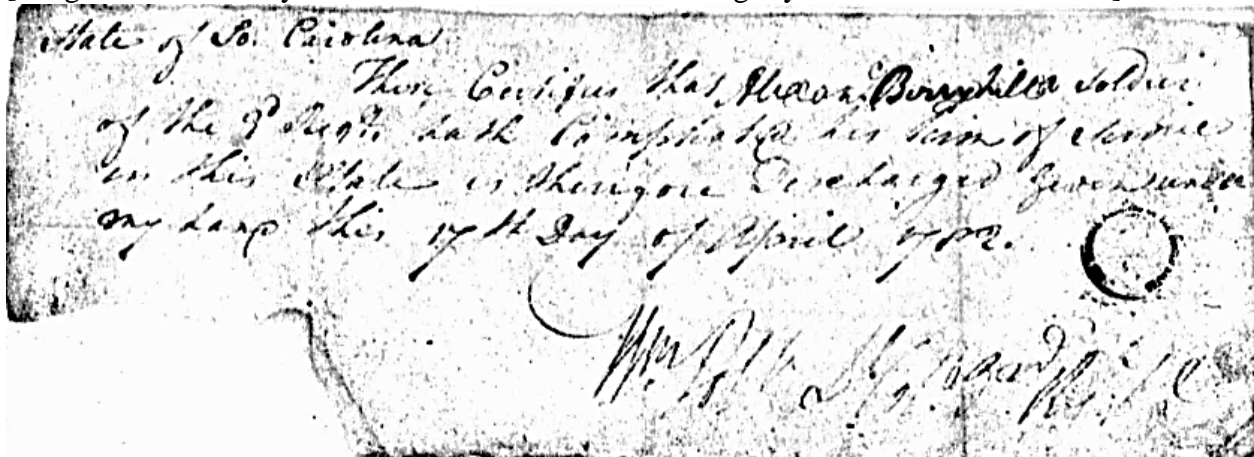 State of So. Carolina
This Certifies that Alexanr. Berryhill a Soldier
of the 3d Regt. hath Compleated his term of Service
in this State is therefore Discharged Given under
my hand this 17th Day of April 1782.
Wm. Polk Lt. Col